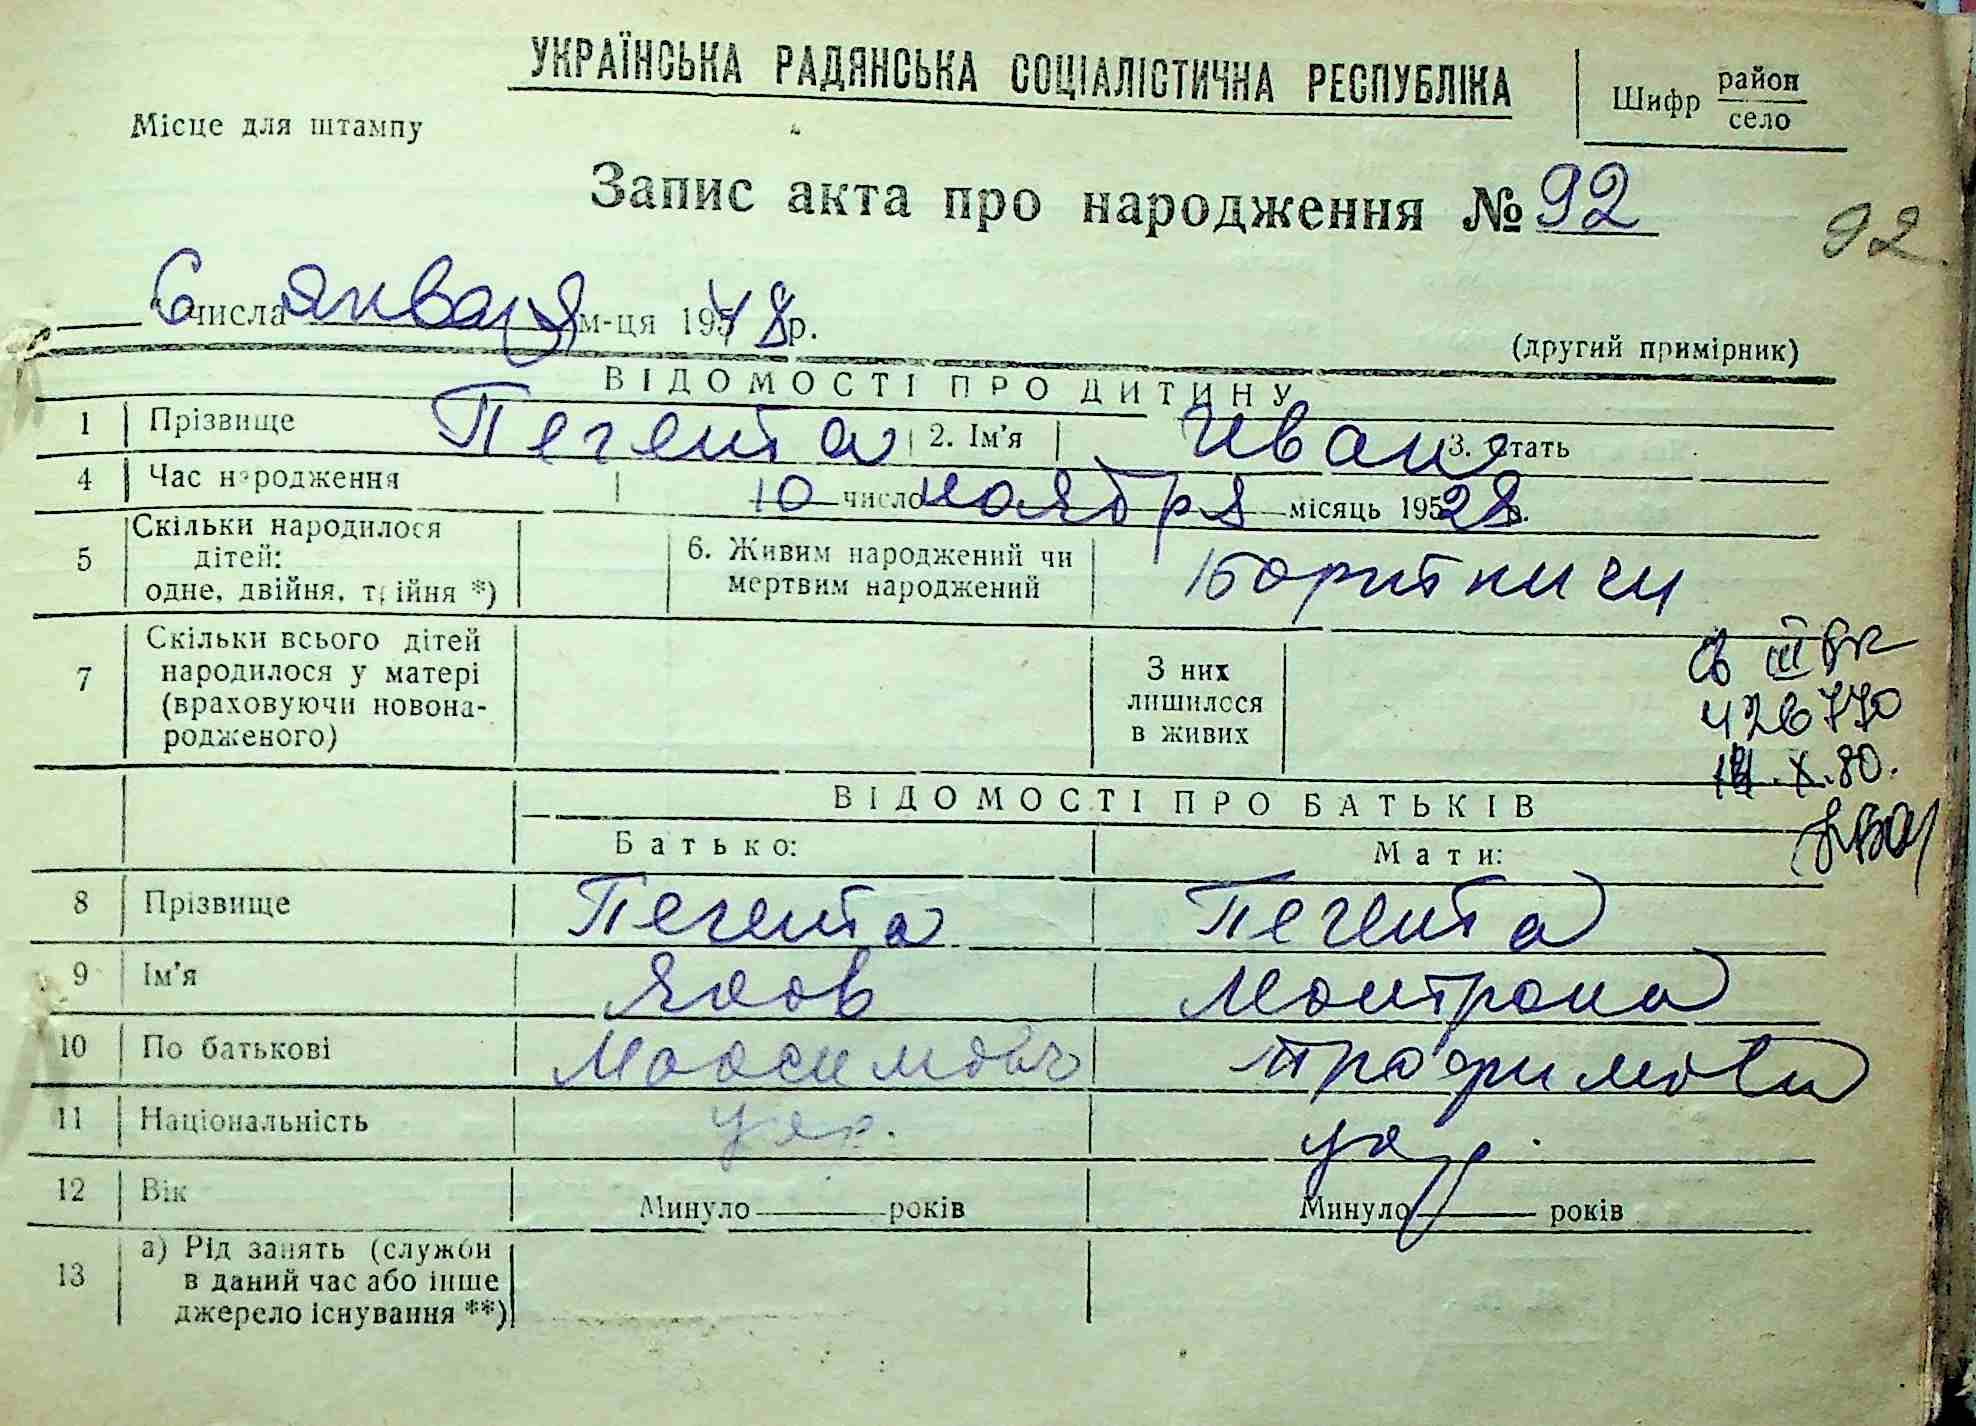 УКРАЇНСЬКА РАДЯНСЬКА СОЦІАЛІСТИЧНА РЕСПУБЛІКА
Шифр район
село
Місце для штампу
Запис акта про народження № 92
92
6 числа января м-ця 1948 р.
(другий примірник)
ВІДОМОСТІ ПРО ДИТИНУ
1 Прізвище Пегента 2. Ім'я Иван 3. Стать
4 Час народження 10 число ноября місяць 1928 р.
5 Скільки народилося
дітей:
одне, двійня, трійня *)
6. Живим народжений чи
мертвим народжений
Бортничи
7 Скільки всього дітей
народилося у матері
(враховуючи новона-
родженого)
З них
лишилося
в живих
св III БК
426770
14.X.80.
ВІДОМОСТІ ПРО БАТЬКІВ
Батько: Мати:
8 Прізвище Пегента Пегента
9 Ім'я Яков Мотрона
10 По батькові Максимович Трофимовна
11 Національність укр. укр.
12 Вік Минуло років Минуло років
13 а) Рід занять (служби
в даний час або інше
джерело існування **)